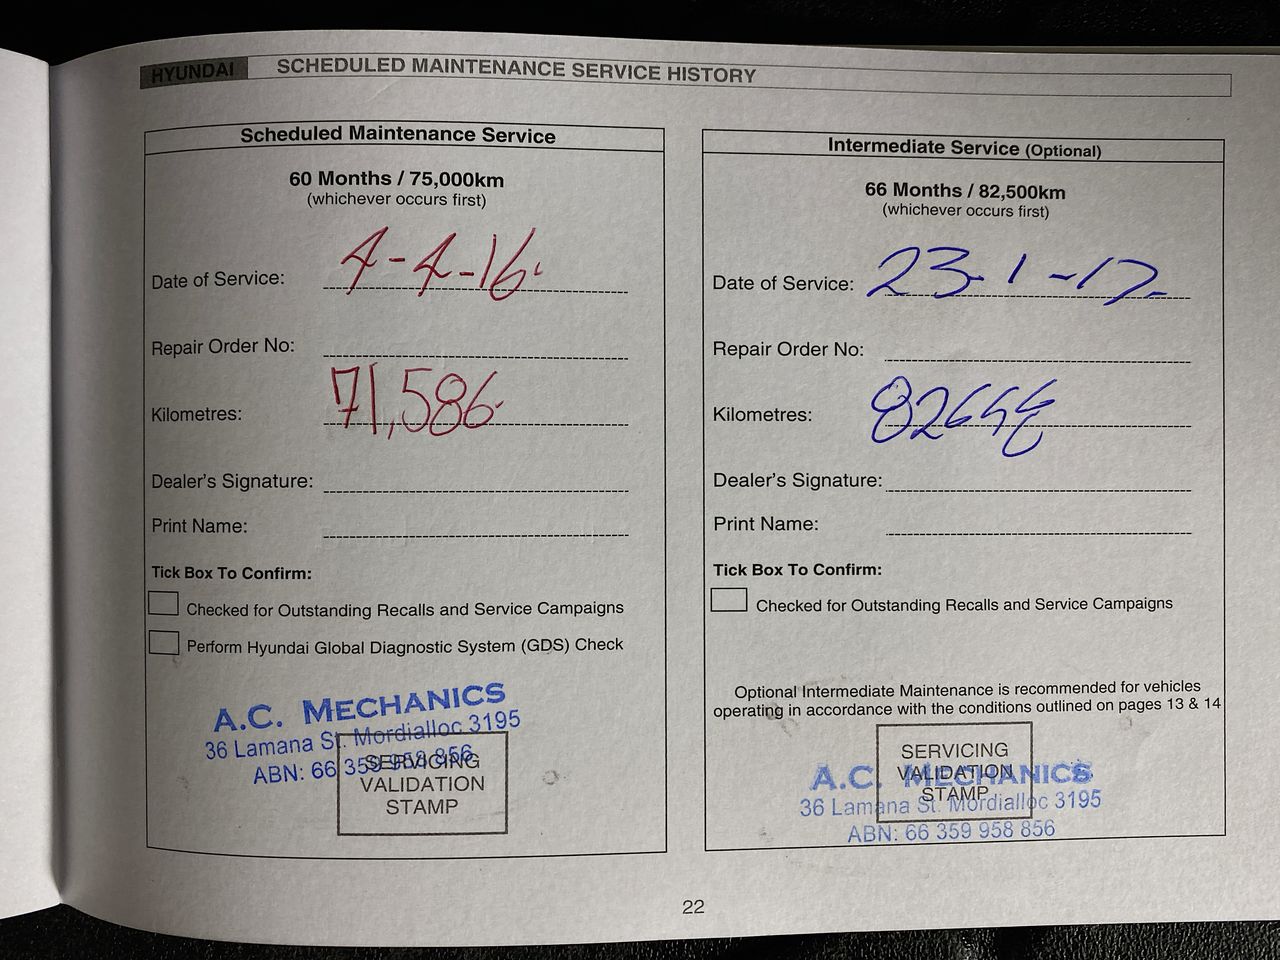 HYUNDAI SCHEDULED MAINTENANCE SERVICE HISTORY
Scheduled Maintenance Service
60 Months / 75,000km
(whichever occurs first)
Date of Service: 4-4-16.
Repair Order No:
Kilometres: 71,586.
Dealer's Signature:
Print Name:
Tick Box To Confirm:
Checked for Outstanding Recalls and Service Campaigns
Perform Hyundai Global Diagnostic System (GDS) Check
A.C. MECHANICS
36 Lamana St. Mordialloc 3195
ABN: 66 359 958 856
SERVICING
VALIDATION
STAMP
Intermediate Service (Optional)
66 Months / 82,500km
(whichever occurs first)
Date of Service: 23-1-17.
Repair Order No:
Kilometres:
Dealer's Signature:
Print Name:
Tick Box To Confirm:
Checked for Outstanding Recalls and Service Campaigns
Optional Intermediate Maintenance is recommended for vehicles
operating in accordance with the conditions outlined on pages 13 & 14
SERVICING
VALIDATION
STAMP
A.C. MECHANICS
36 Lamana St. Mordialloc 3195
ABN: 66 359 958 856
22